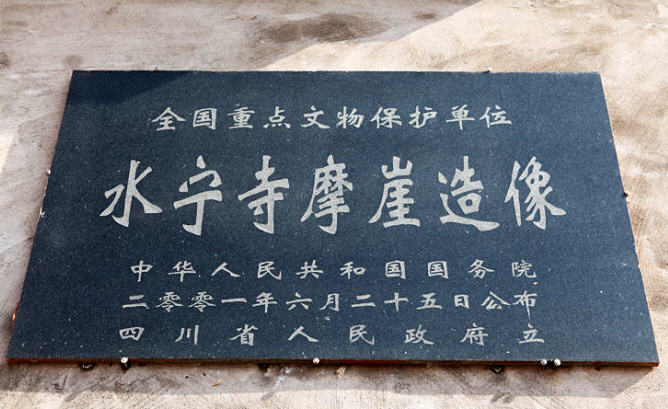 全国重点文物保护单位
水宁寺摩崖造像
中华人民共和国国务院
二零零一年六月二十五日公布
四川省人民政府立